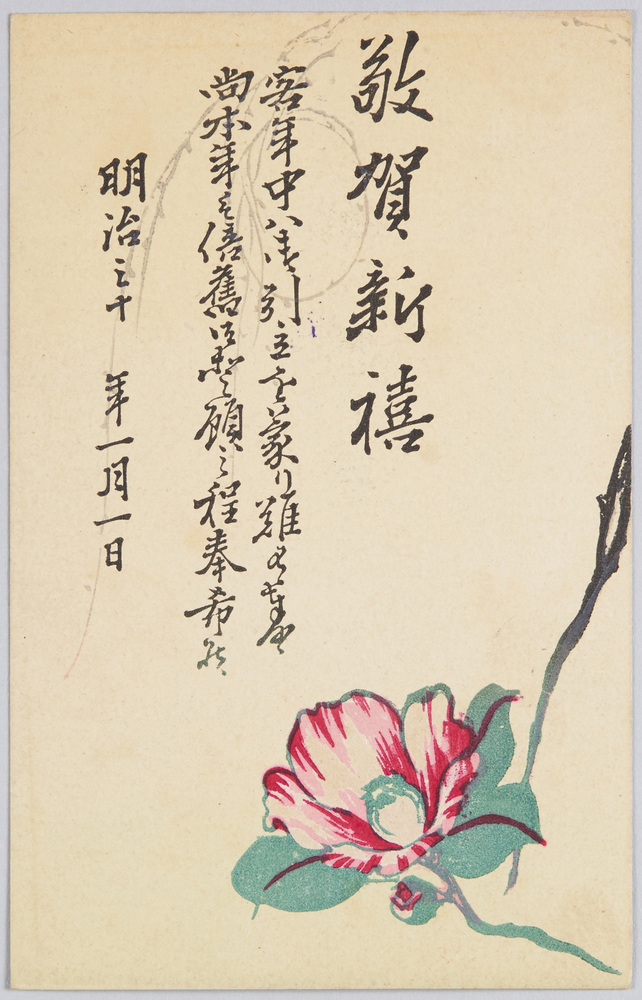 敬賀新禧
客年中ハ御引立を蒙り難有奉
尚本年も倍舊御愛顧之程奉希
明治三十 年一月一日